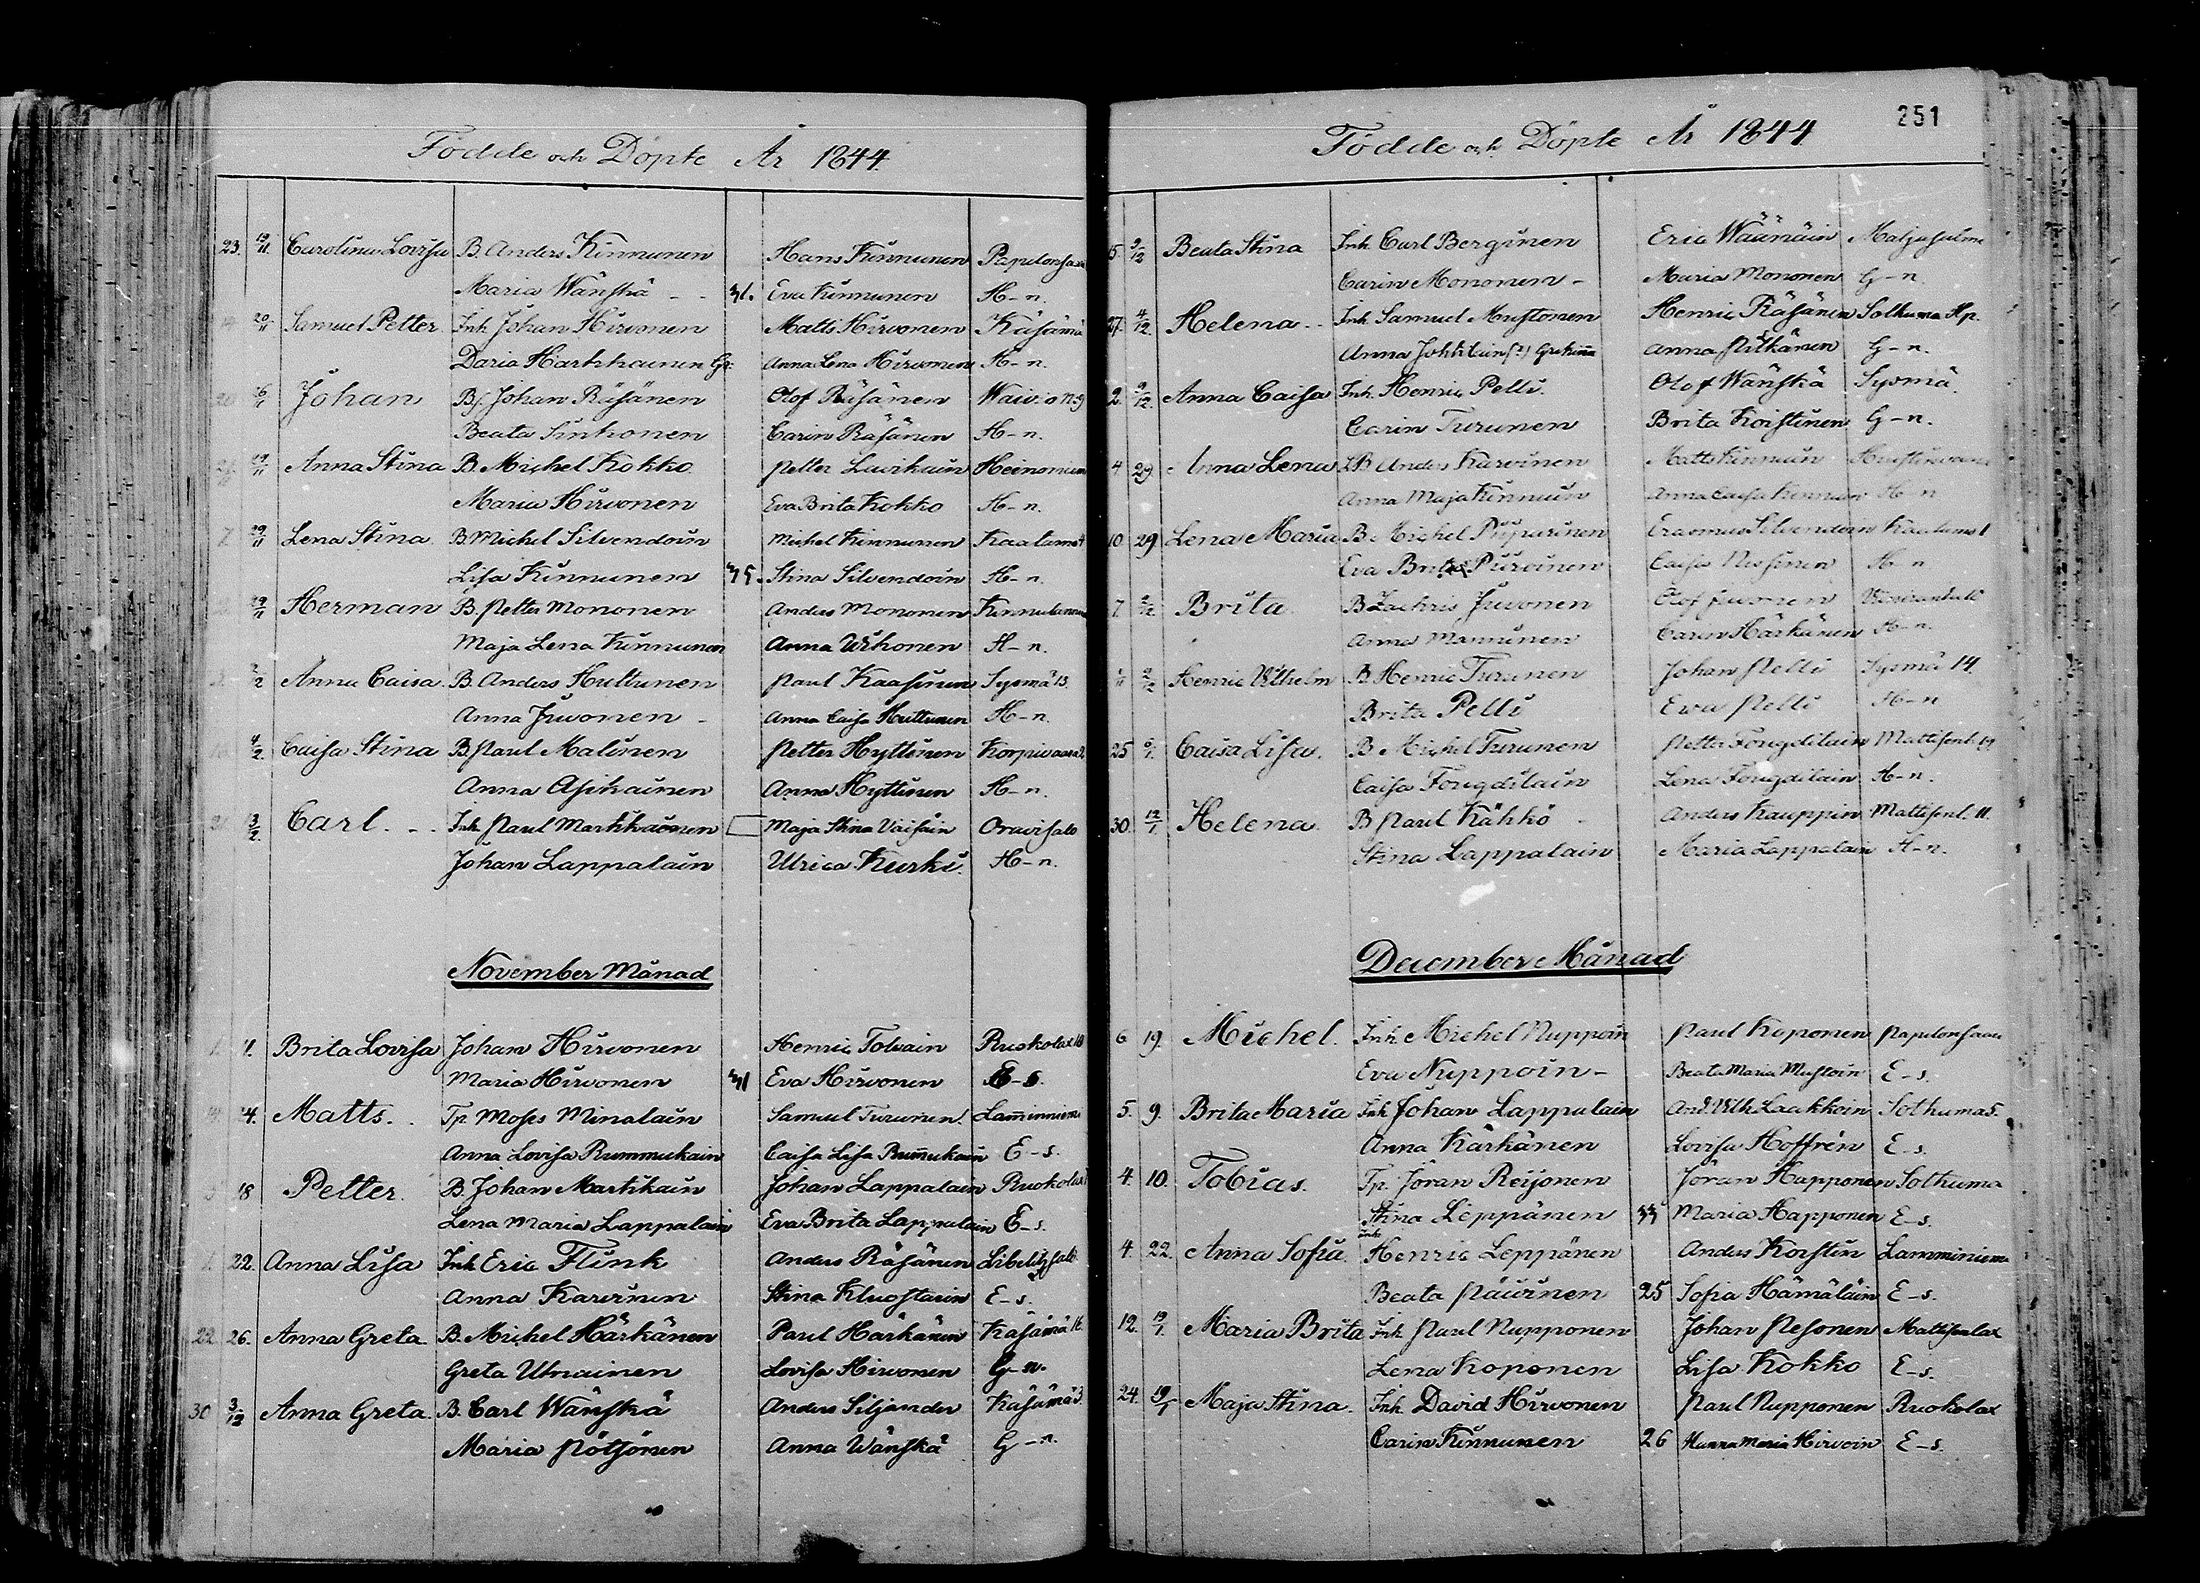 Födde och Döpte År 1844.
23. 19/11 Carolina Lovisa B. Anders Kinnunen Hans Kinnunen
Maria Wänskä - - 31. Eva Kinnunen H-n.
20/11 Samuel Petter Inh. Johan Hirvonen Matts Hirvonen Käsämä
Daria Harkkainen Gr. Anna Lena Hirvonen H-n.
Johan Bs. Johan Räsänen Olof Räsänen Waivio N:9
Beata Sinkonen Carin Räsänen H-n.
29/11 Anna Stina B. Michel Kokko Petter Heinoniem
Maria Hirvonen Eva Brita Kokko H-n.
29/11 Lena Stina B. Michel Silvendoin Michel Kinnunen Kaatamo 4
Lisa Kinnunen 35. Stina Silvendoin H-n.
29/11 Herman B. Petter Mononen Anders Mononen
Maja Lena Kinnunen Anna H-n.
2/2 Anna Caisa B. Anders Huttunen Paul Kaasinen Sysmä 13.
Anna Juvonen - Anna Caisa Huttunen H-n.
4/2. Caisa Stina B Paul Malinen Petter Hyttinen Korpivaara 2.
Anna Asikainen Anna Hyttinen H-n.
3/2. Carl. - - Inh. Paul Martikainen Maja Stina Väisäin Oravisalo
Johan Lappalain Ulrica Kurki. H-n.
November Månad
11. Brita Lovisa Johan Hirvonen Henric Tolvain Ruokolax 10
Maria Hirvonen 31 Eva Hirvonen E-s.
14. Matts. . Tp Moses Minalain Samuel Turunen. Lamminniemi
Anna Lovisa Rummukain Caisa Lisa Rummukain E-s.
18 Petter. B. Johan Martikain Johan Lappalain Ruokolax
Lena Maria Lappalain Eva Brita Lappalain E-s.
22. Anna Lisa Inh Eric Flink Anders Räsänen
Anna Karvinen Stina Kluostarin E-s.
22 26. Anna Greta B. Michel Härkänen Paul Härkänen Käsämä 16.
Greta Utriainen Lovisa Hirvonen G-n.
30 3/12 Anna Greta. B. Carl Wänskä Anders Siljander Käsämä 3.
Maria Pötsönen Anna Wänskä G-n.
251
Födde och Döpte År 1844
15. 9/12 Beata Stina Inh. Carl Berginen Eric Wäänäin Maljasalmi
Carin Mononen - Maria Mononen G-n.
27. 4/12. Helena. - Inh. Samuel Mustonen Henric Räsänen Solkuma Kp.
Anna (?) Grekinna Anna Pitkänen G-n.
2. 9/12. Anna Caisa Inh. Henric Pelli. Olof Wänskä Sysmä
Carin Turunen Brita Koistinen G-n.
4 29. Anna Lena B Anders Karvinen Matts Kinnuin
Anna Maja Kinnuin Anna Caisa Kinnuin H-n
10 29 Lena Maria B. Michel Piiparinen Erasmus Silvendoin Kaatamo 1
Eva Brita Puroinen Caisa Nissinen H-n
7. 2/12 Brita B. Zachris Juvonen Olof Juvonen
Anna Manninen Carin Härkänen H-n.
2/12 Henric Wilhelm B. Henric Turunen Johan Pelli Sysmä 14.
Brita Pelli Eva Pelli H-n
25 6/1. Caisa Lisa. B. Michel Turunen Petter Fougdilain Mattisenl. 19
Caisa Fougdilain Lena Fougdilain H-n.
30. 12/1. Helena. B Paul Kähkö Anders Kauppin Mattisenl. 11.
Stina Lappalain Maria Lappalain H-n.
December Månad
6 19. Michel. Inh. Michel Nuppoin Paul Koponen
Eva Nuppoin - Beata Maria Mustoin E-s.
5. 9. Brita Maria Inh Johan Lappalain And. Wilh Laakkoin Sothuma 5.
Anna Kärkänen Lovisa Hoffrén E-s.
4. 10. Tobias. Tp. Jöran Reijonen Jöran Happonen Sothuma
Stina Leppänen 33 Maria Happonen E-s.
4. 22. Anna Sofia. Inh Henric Leppänen Anders Koistin Lamminiemi
Beata Päivinen 25 Sofia Hämäläin E-s.
12. 19/1. Maria Brita Inh. Paul Nupponen Johan Pesonen Mattisenlax
Lena Koponen Lisa Kokko E-s.
24. 19/1 Maja Stina. Inh. David Hirvonen Paul Nupponen Ruokolax
Carin Kinnunen 26 Hanna Maria Hirvoin E-s.